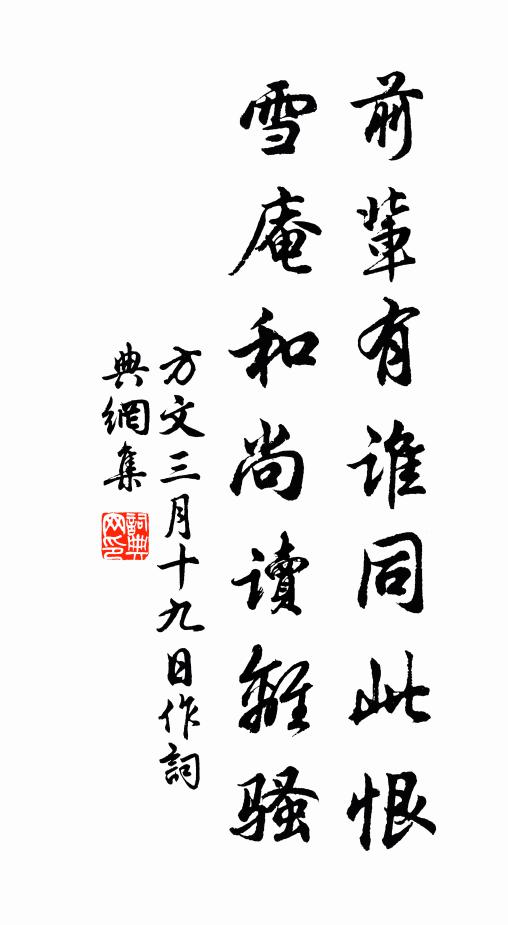 前輩有誰同此恨
雪庵和尚讀離騷
方文三月十九日作詞
典網集
詞典網印